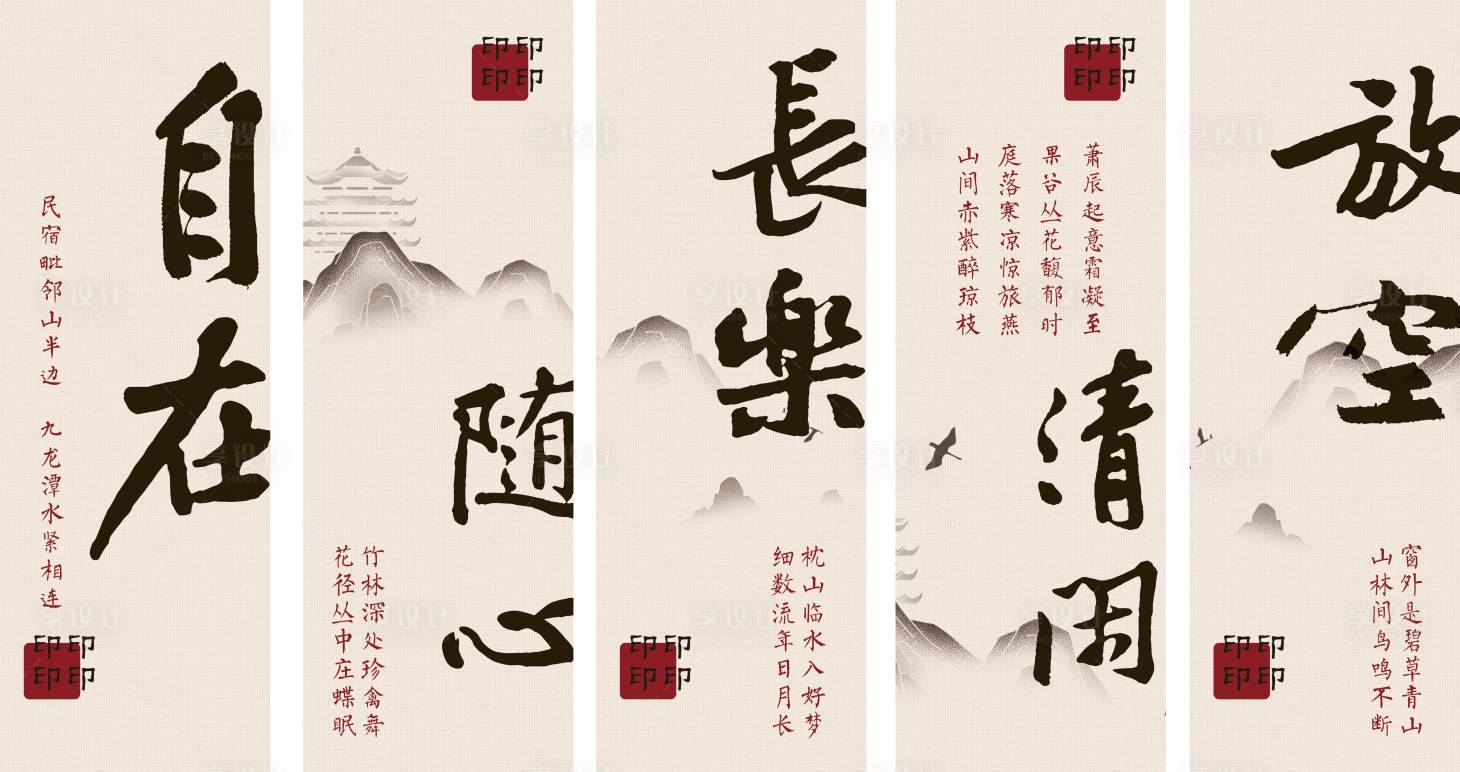 自在
民宿毗邻山半边 九龙潭水紧相连
印印
印印
印印
印印
随心
竹林深处珍禽舞
花径丛中庄蝶眠
長樂
枕山临水入好梦
细数流年日月长
印印
印印
印印
印印
萧辰起意霜凝至
果谷丛花馥郁时
庭落寒凉惊旅燕
山间赤紫醉琼枝
清闲
放空
窗外是碧草青山
山林间鸟鸣不断
印印
印印
享设计